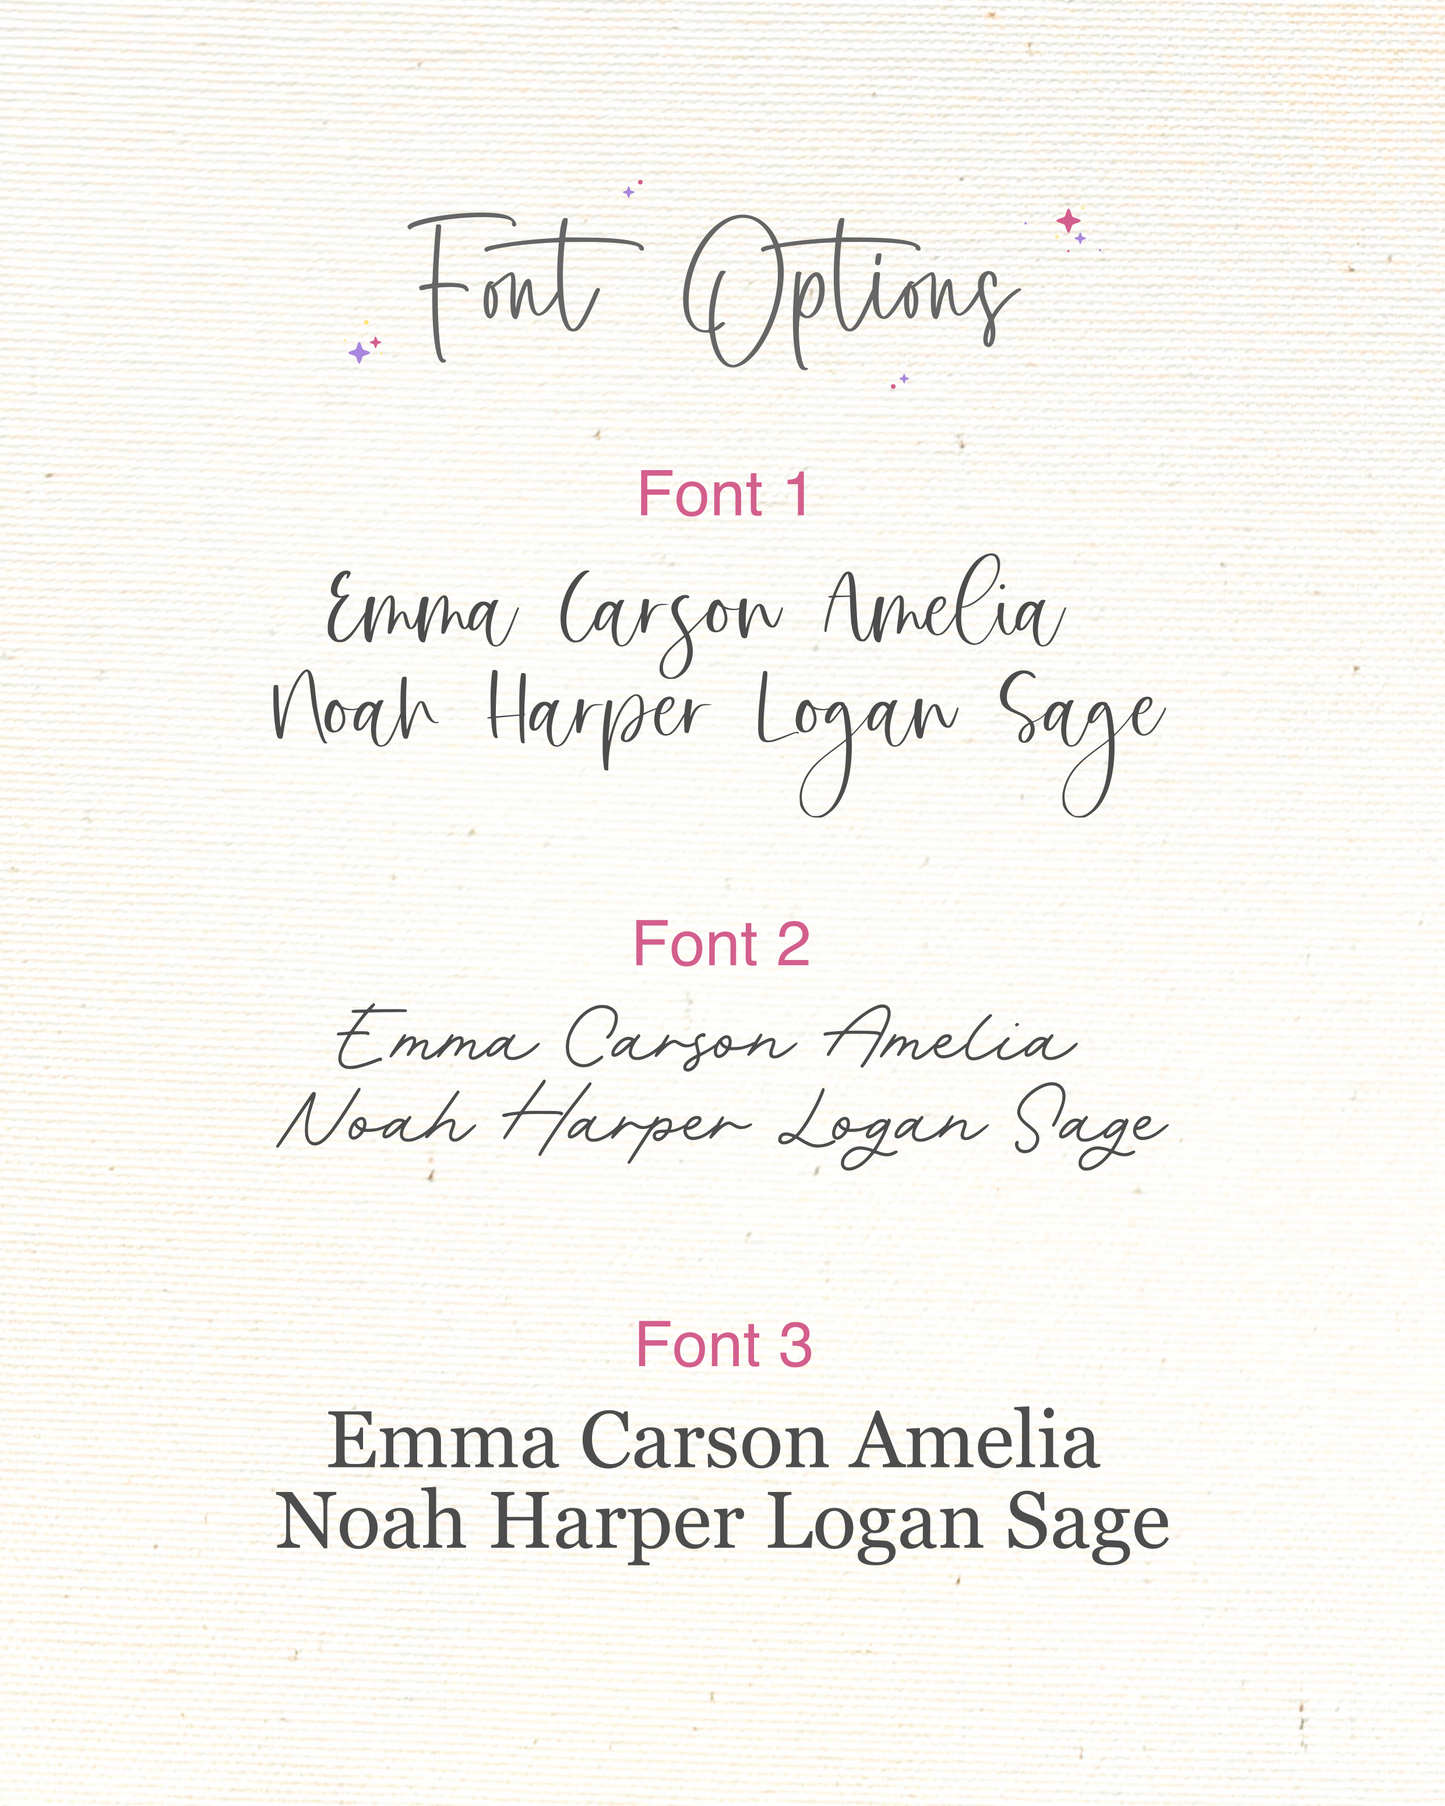 Font Options
Font 1
Emma Carson Amelia
Noah Harper Logan Sage
Font 2
Emma Carson Amelia
Noah Harper Logan Sage
Font 3
Emma Carson Amelia
Noah Harper Logan Sage